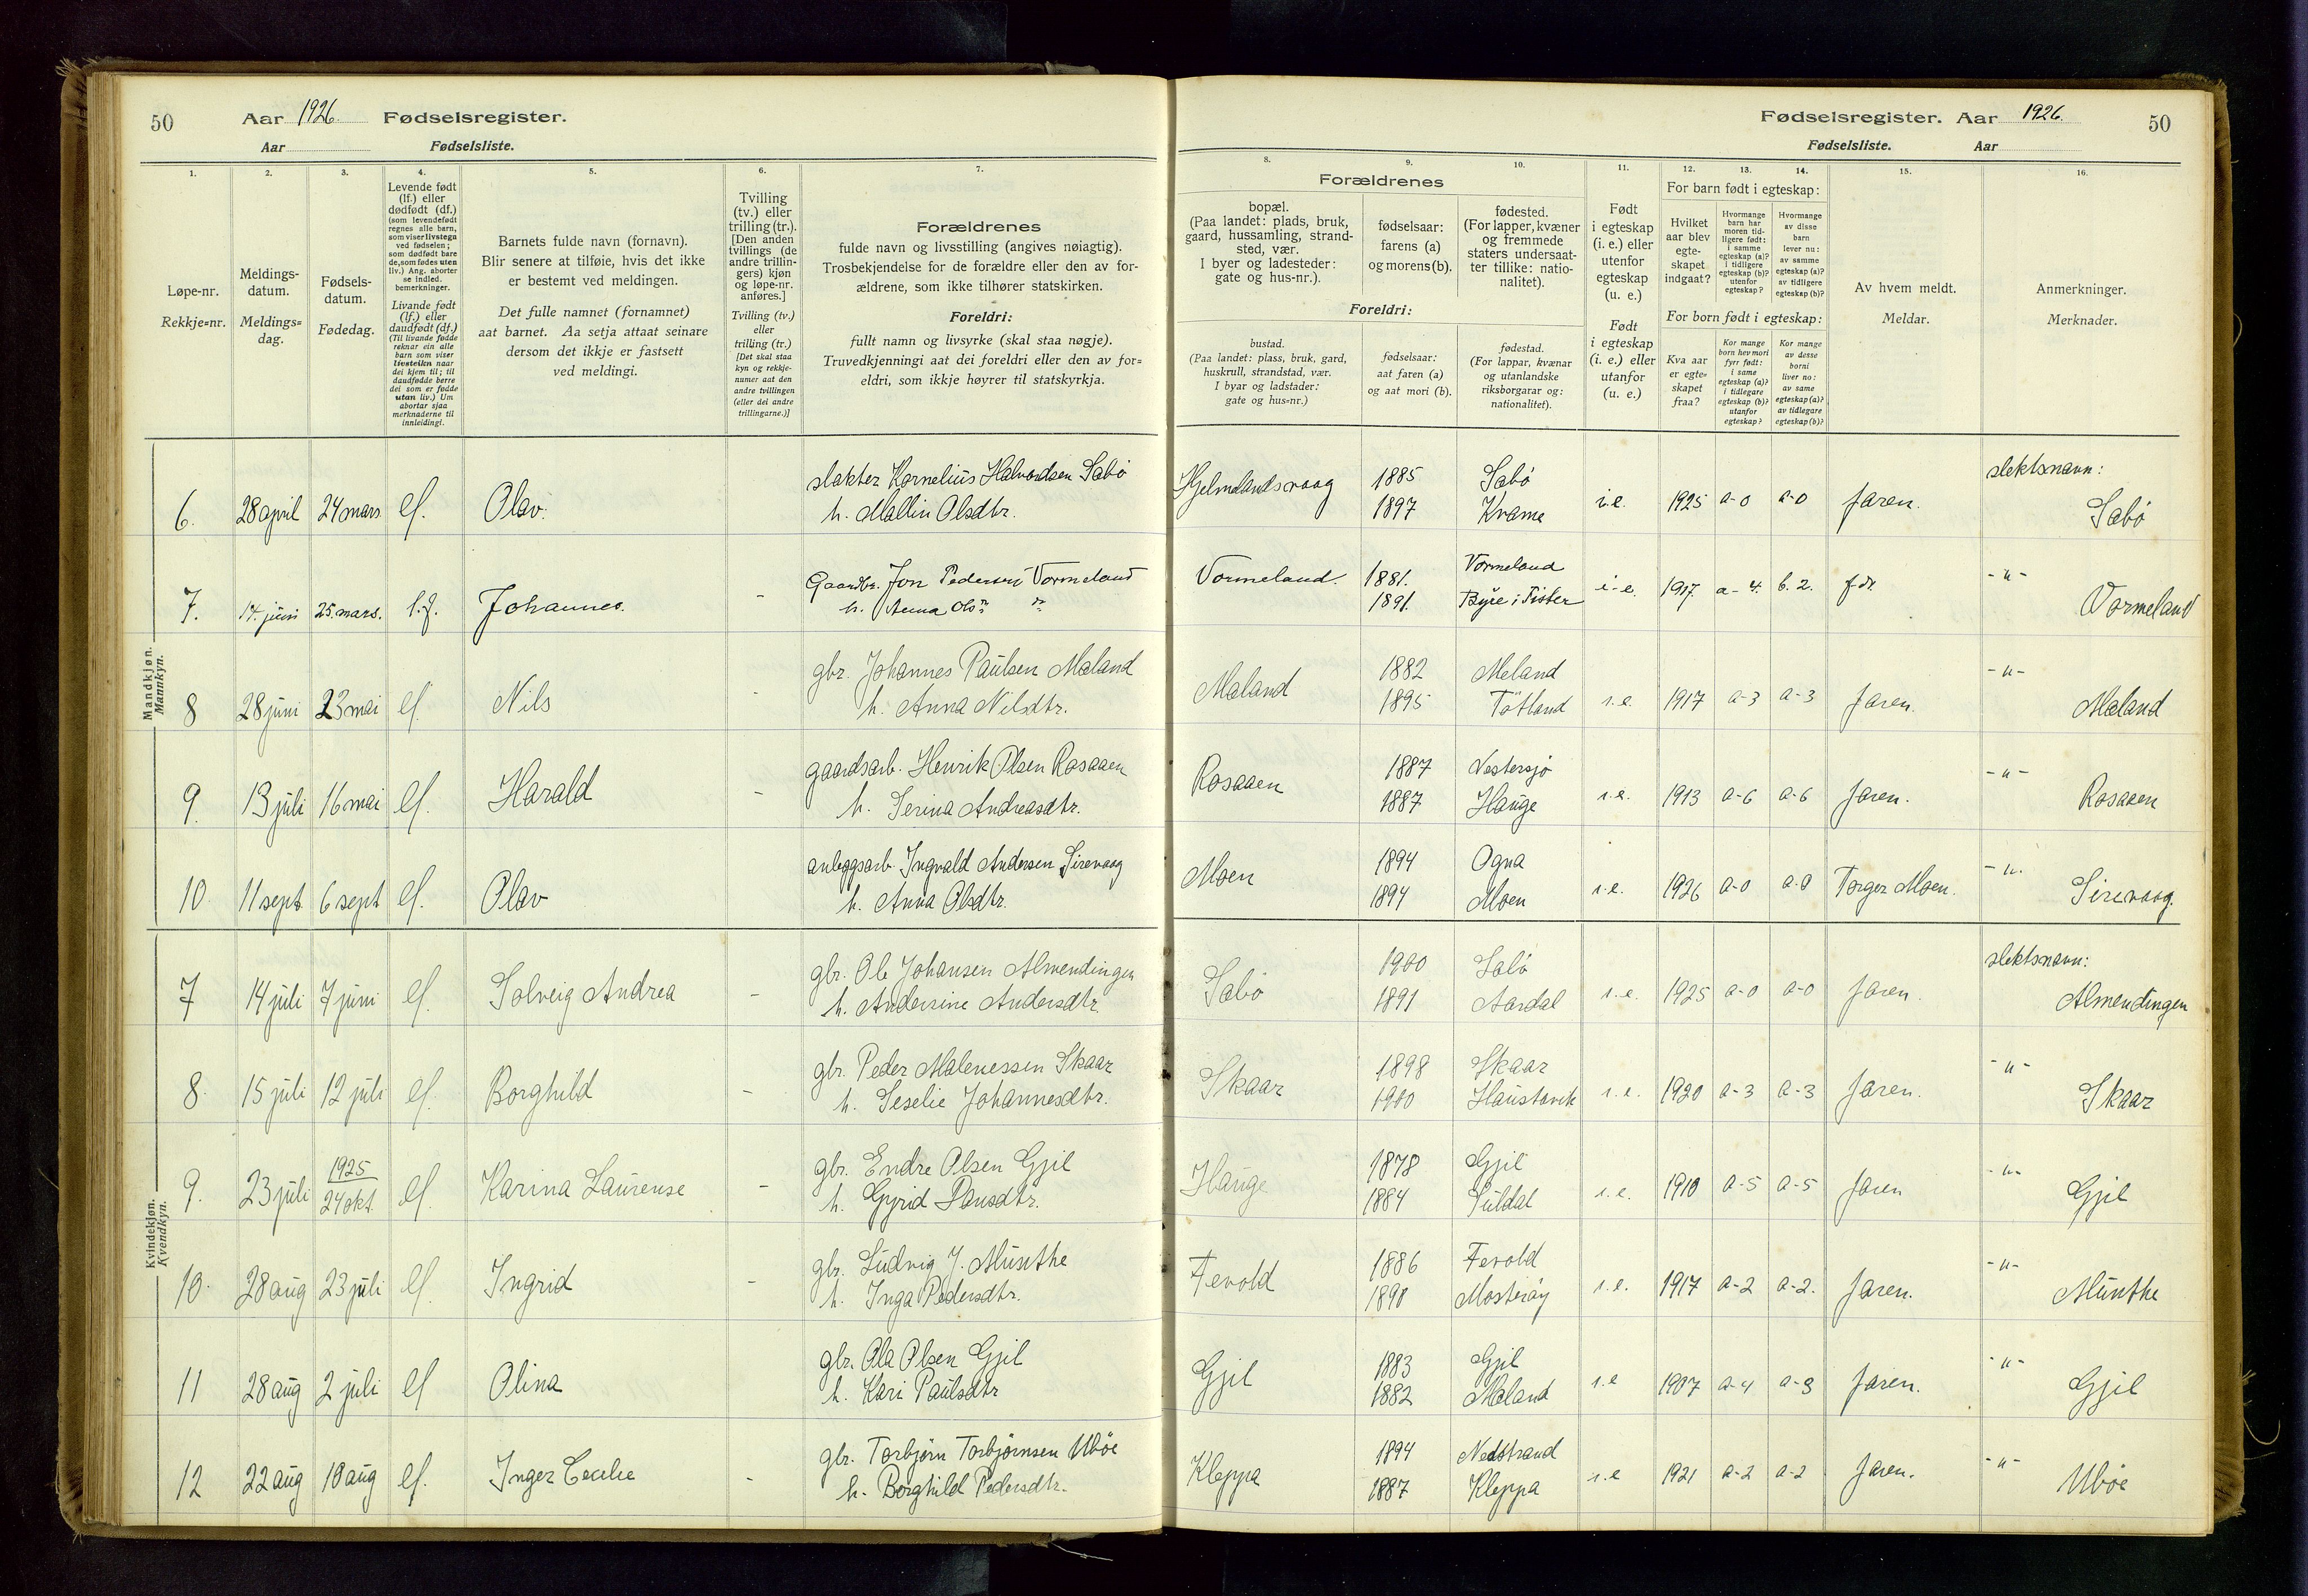 50 Aar 1926. Fødselsregister.
Aar Fødselsliste.
Fødselsregister. Aar 1926. 50
Fødselsliste. Aar
1. 2. 3. 4. 5. 6. 7. 8. 9. 10. 11. 12. 13. 14. 15. 16.
Løpe-nr.
Rekkje=nr.
Meldings-
datum.
Meldings=
dag.
Fødsels-
datum.
Fødedag.
Levende født
(lf.) eller
dødfødt (df.)
(som levendefødt
regnes alle barn,
som viser livstegn
ved fødselen;
som dødfødt bare
de, som fødes uten
liv.) Ang. aborter
se indled.
bemerkninger.
Livande født
(lf.) eller
daudfødt (df.)
(Til livande fødde
reknar ein alle
barn som viser
livsteikn naar
dei kjem til; til
daudfødde berre
dei som er fødde
utan liv.) Um
abortar sjaa
merknaderne til
innleidingi.
Barnets fulde navn (fornavn).
Blir senere at tilføie, hvis det ikke
er bestemt ved meldingen.
Det fulle namnet (fornamnet)
aat barnet. Aa setja attaat seinare
dersom det ikkje er fastsett
ved meldingi.
Tvilling
(tv.) eller
trilling (tr.).
[Den anden
tvillings (de
andre trillin-
gers) kjøn
og løpe-nr.
anføres.]
Tvilling (tv.)
eller
trilling (tr.)
[Det skal staa
kyn og rekkje-
numer aat den
andre tvillingen
(eller dei andre
trillingarne.)]
Forældrenes
fulde navn og livsstilling (angives nøiagtig).
Trosbekjendelse for de forældre eller den av for-
ældrene, som ikke tilhører statskirken.
Foreldri:
fullt namn og livsyrke (skal staa nøgje).
Truvedkjenningi aat dei foreldri eller den av for=
eldri, som ikkje høyrer til statskyrkja.
Forældrenes
bopæl.
(Paa landet: plads, bruk,
gaard, hussamling, strand-
sted, vær.
I byer og ladesteder:
gate og hus-nr.).
fødselsaar:
farens (a)
og morens (b).
fødested.
(For lapper, kvæner
og fremmede
staters undersaat-
ter tillike: natio-
nalitet).
Foreldri:
bustad.
(Paa landet: plass, bruk, gard,
huskrull, strandstad, vær.
I byar og ladstader:
gate og hus=nr.)
fødselsaar:
aat faren (a)
og aat mori (b).
fødestad.
(For lappar, kvænar
og utanlandske
riksborgarar og:
nationalitet).
Født
i egteskap
(i. e.) eller
utenfor
egteskap
(u. e.)
Født
i egteskap
(i. e.) eller
utanfor
(u. e.)
For barn født i egteskap:
Hvilket
aar blev
egte-
skapet
indgaat?
Hvormange
barn har
moren tid-
ligere født:
i samme
egteskap (a)?
i tidligere
egteskap (b)?
utenfor
egteskap?
Hvormange
av disse
barn
lever nu:
av samme
egteskap (a)?
av tidligere
egteskap (b)?
For born født i egteskap:
Kva aar
er egte=
skapet
fraa?
Kor mange
born hev mori
fyrr født:
i same
egteskap (a)?
i tidlegare
egteskap (b)?
utanfor
egteskap?
Kor mange
av desse
borni
liver no:
av same
egteskap (a)?
av tidlegare
egteskap (b)?
Av hvem meldt.
Meldar.
Anmerkninger.
Merknader.
Mandkjøn.
Mannkyn.
6. 28 april 24 mars lf. Olav. slakter Kornelius Halvordsen Sabø Hjelmelandsvaag 1885 Sabø i.e. 1925 a-0 a-0 faren. slektsnavn:
h. Mallin Olsdtr. 1897 Krame Sabø
7. 14. juni 25. mars. l.f. Johannes. - Gaardbr. Jon Pedersen Vormeland Vormeland. 1881. Vormeland i-e. 1917 a-4. b.2. fdr. -"-
h. Anna Ols 1891. Byre i Fister Vormeland
8 28 juni 23 mai lf. Nils - gbr. Johannes Paulsen Mæland Mæland 1882 Meland i.e. 1917 a-3 a-3 faren. -"-
h. Anna Nilsdtr. 1895 Tøtland Mæland
9. 13 juli 16 mai lf. Harald - gaardsarb. Henrik Olsen Rosaaen Rosaaen 1887 Vestersjø i.e. 1913 a-6 a-6 faren. -"-
h. Serina Andreasdtr. 1887 Hauge Rosaaen
10. 11 sept. 6 sept lf. Olav anleggsarb. Ingvald Andersen Sirevaag Moen 1894 Ogna i.e. 1926 a-0 a-0 Torger Moen. -"-
h. Anna Olsdtr. 1894 Moen Sirevaag.
Kvindekjøn.
Kvendkyn.
7 14 juli 7 juni lf. Solveig Andrea - gbr. Ole Johansen Almendingen Sabø 1900 Sabø i.e. 1925 a-0 a-0 faren. slektsnavn:
h. Andersine Andersdtr. 1891 Aardal Almendingen
8. 15 juli 12 juli lf. Borghild - gbr. Peder Malenessen Skaar Skaar 1898 Skaar i.e. 1920 a-3 a-3 faren. -"-
h. Seselie Johannesdtr. 1900 Haustavik Skaar
9. 23 juli 1925 24 okt. lf. Karina Laurense - gbr. Endre Olsen Gjil Hauge 1878 Gjil i.e. 1910 a-5 a-5 faren -"-
h. Gyrid 1884 Suldal Gjil
10. 28 aug 23 juli lf. Ingrid - gbr. Ludvig J. Munthe Fevold 1886 Fevold i.e. 1917 a-2 a-2. faren. -"-
h. Inga Pedersdtr. 1890 Mosterøy Munthe
11 28 aug 2 juli lf Olina gbr. Ola Olsen Gjil Gjil 1883 Gjil i.e 1907 a-4 a-3 faren. -"-
h. Kari Paulsdtr 1882 Mæland Gjil
12 22 aug 10 aug lf. Inger Cecelie - gbr. Torbjørn Torbjørnsen Ubøe Kleppa 1894 Nedstrand i.e 1921 a-2 a-2 faren. -"-
h. Borghild Pedersdtr. 1887 Kleppa Ubøe